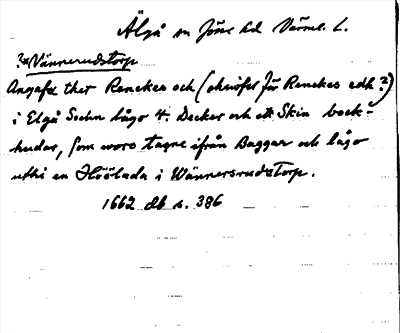 Älgå sn Jösse hd Värml. l.
?*Wännerudstorp
Angafs ther Renekes och (chuifel för Renekes edh?)
i Elgå Sochn lågo 4. Decker och itt Skin bock-
hudar, som woro tagne ifrån Baggar och lågo
uthi en Höölada i WännersrudsTorp.
1662 db s. 386